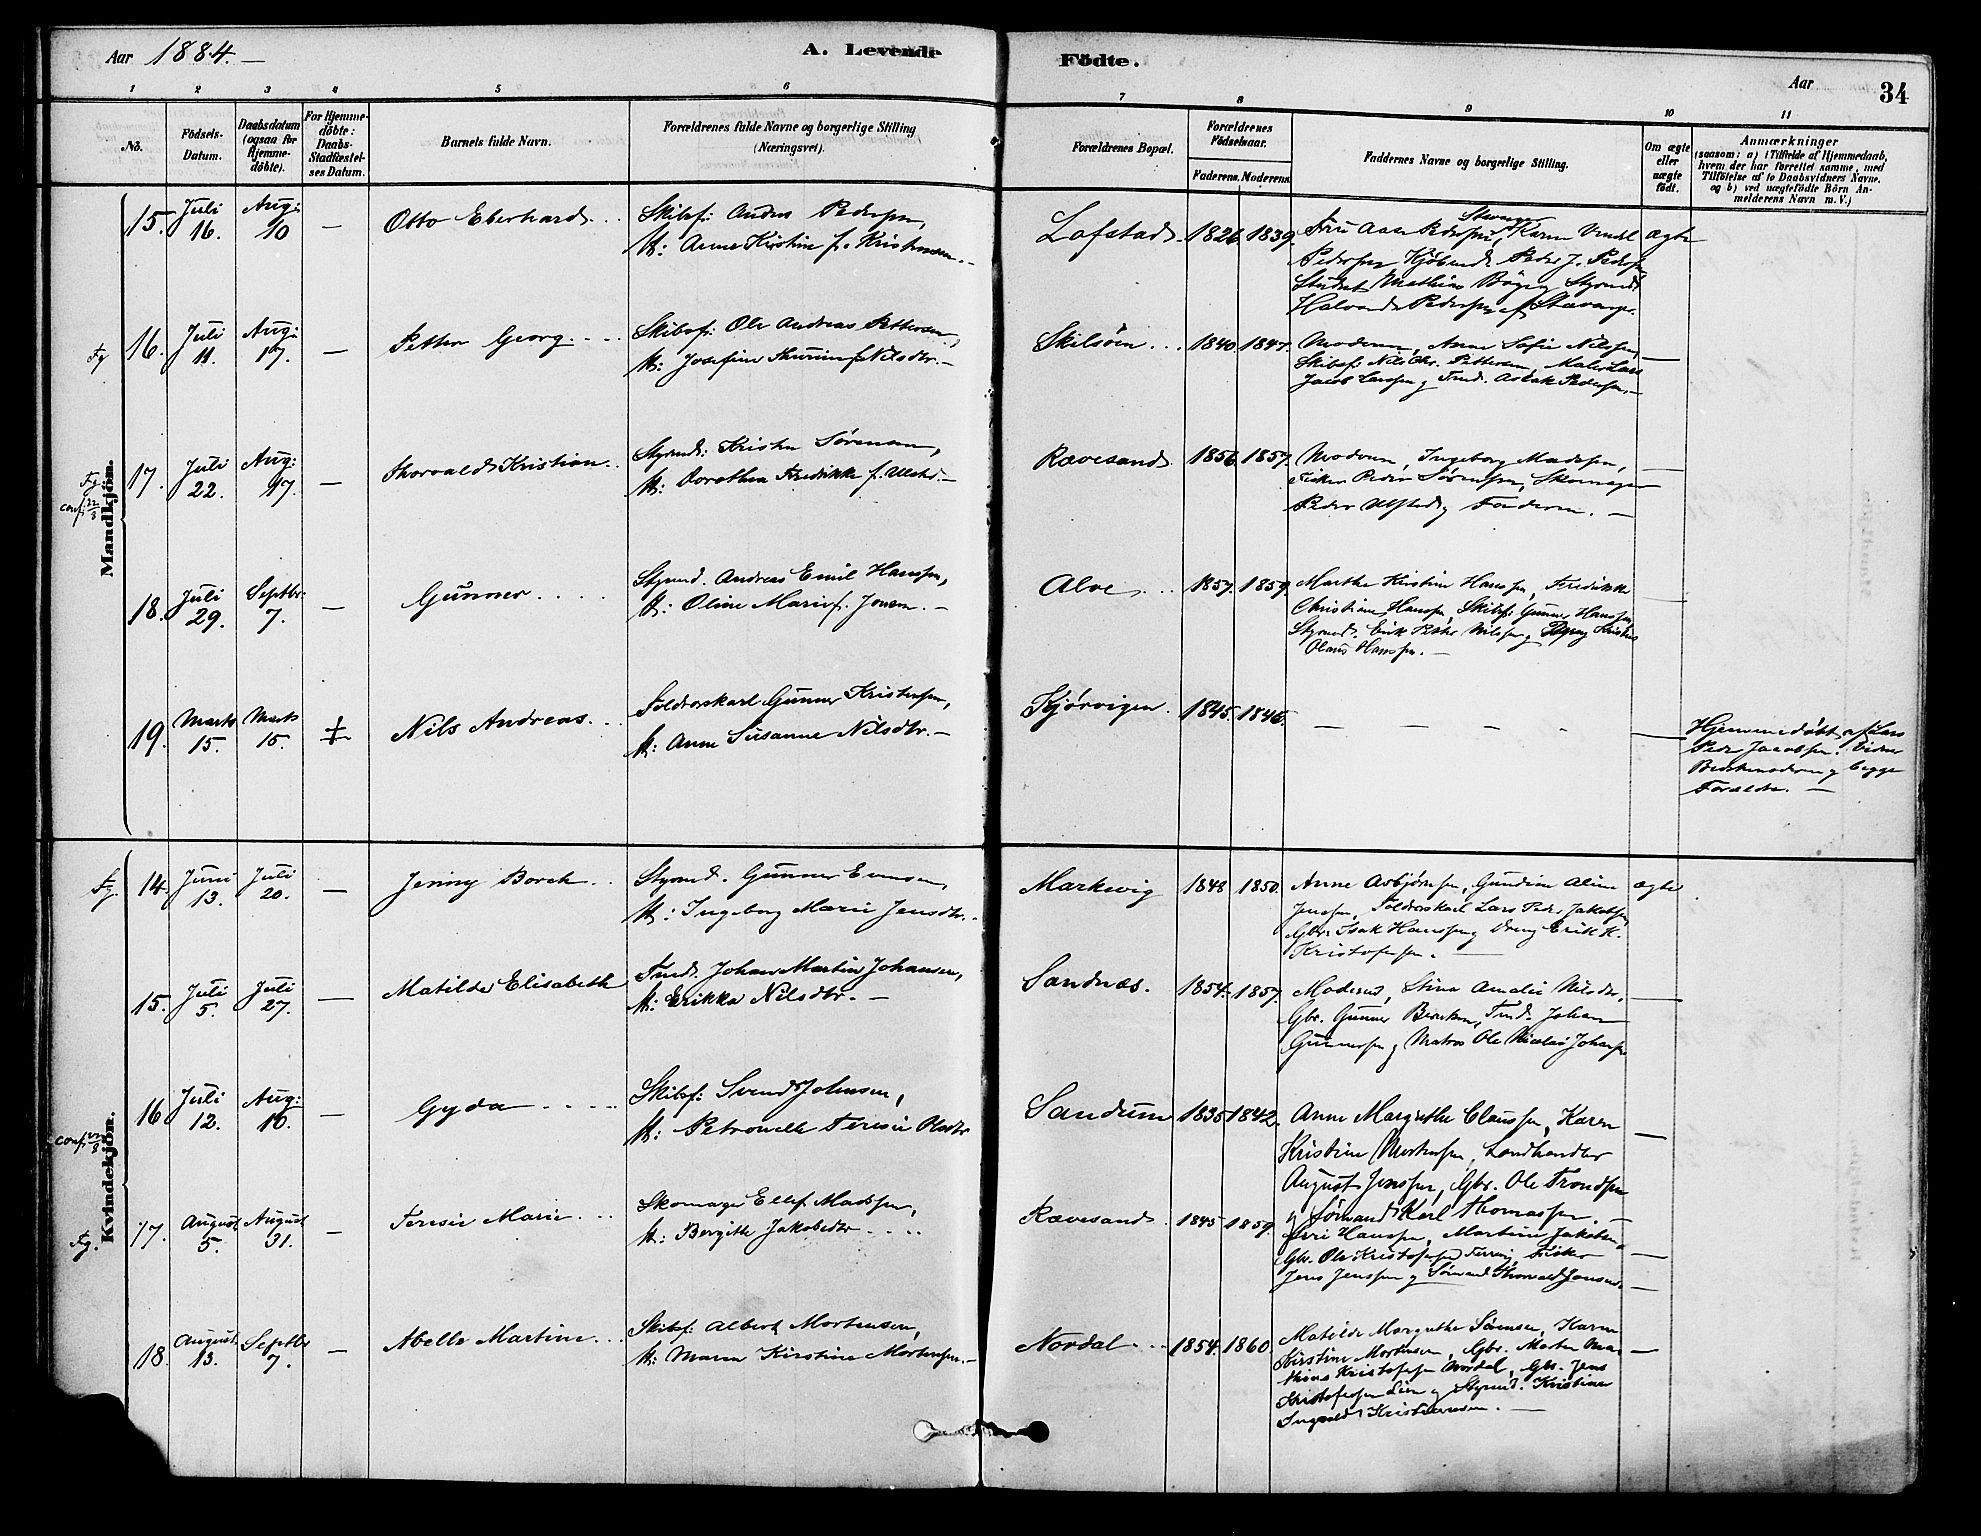 Aar 1884. —
A. Levende
Födte.
Aar
34
1 2 3 4 5 6 7 8 9 10 11
No.
Födsels-
Datum.
Daabsdatum
(ogsaa for
Hjemme-
döbte).
For Hjemme-
döbte:
Daabs-
Stadfæstel-
ses Datum.
Barnets fulde Navn.
Forældrenes fulde Navne og borgerlige Stilling
(Næringsvei).
Forældrenes Bopæl.
Forældrenes
Födselsaar.
Faderens. Moderens.
Faddernes Navne og borgerlige Stilling.
Om ægte
eller
uægte
født.
Anmærkninger
(saasom: a) i Tilfælde af Hjemmedaab,
hvem der har forrettet samme, med
Tilföielse af to Daabsvidners Navne.
og b) ved uægtefödte Börn An-
melderens Navn m. V.)
Mandkjön.
15. Juli 16. Aug: 10 — Otto Eberhard...
Skibsf: Anders Pedersen,
H: Anne Kirstine f. Kristensen.—
Lofstad. 1826. 1839.
Fru Aase Pedersen, Stavanger, Karen
Pedersen Peder J. Pedersen
Student Mathias Styrmd.
Halvard Pedersen af Stavanger.
ægte
Fg 16. Juli 11. Aug: 17. — Petter Georg....
Skibsf: Ole Andreas Pettersen,
H: Josefine f. Nilsdtr.—
Skilsøen... 1840 1847.
Moderen, Anne Sofie Nilssen,
Skibsf: Nils Chr. Pettersen, Maler Lars
Jacob Larssen og Tmd. Aslak Pedersen.—
—
Fg
conf 22/8
17. Juli 22. Aug: 17. — Thorvald Kristian..
Styrmd: Kristen Sørensen,
H: Dorothea Fredrikke f.
Rævesand 1856 1857.
Moderen, Ingeborg Madssen,
Fisker Peder Sørensen, Skomager
Peder Ulsted og Faderen.—
—
18. Juli 29. Septbr: 7. — Gunner.....
Styrmd. Andreas Emil Hanssen,
H: Oline Marie f. Jensen.—
Alve... 1857. 1859
Marthe Kirstine Hanssen, Fredrikke
Christiane Hanssen, Skibsf: Gunner Hanssen,
Styrmd. Erik Petter Nilssen og Dreng
Olaus Hanssen.—
—
19. Marts 15. Marts 15. ‡ Nils Andreas...
Toldroerskarl Gunner Kristensen,
H: Anne Susanne Nilsdtr.—
Kjørvigen. 1845. 1846.
— — — —
Hjemmedøbt af Lars
Peder Jacobsen. Vidner
Bedstemoderen og begge
Forældre.—
Kvindekjön.
Fg 14. Juni 13. Juli 20. — Jenny Borch..
Styrmd. Gunner Evensen,
H: Ingeborg Marie Jensdtr..
Markevig 1848 1850.
Anne Asbjørnsen, Gundine Aline
Jenssen, Toldroerskarl Lars Peder Jakobsen,
Gbr. Isak Hanssen og Dreng Erik K.
Kristofersen.—
ægte
15. Juli 5. Juli 27. — Matilde Elisabeth
Tmd. Johan Martin Johansen,
H: Erikka Nilsdtr.—
Sandnæs. 1854. 1857.
Moderen, Stina Amalie Nilsdtr.
Gbr. Gunner Tmd. Johan
Gunnerssen og Matros Ole Nicolai Johansen
—
conf 22/8
16 Juli 12. Aug: 10. — Gyda.....
Skibsf: Svend Johnsen,
H: Petronelle Teresie
Sandum 1835 1842.
Anne Margrethe Claussen, Karen
Kristine Mortensen, Landhandler
August Jenssen, Gbr. Ole Trondsen
og Sømand Karl Thomassen.—
—
Fg. 17. August 5. August 31. — Teresie Marie...
Skomager Ellef Madssen,
H: Bergitte Jakobsdtr....
Rævesand. 1845 1859.
Hanssen, Martine Jakobsen,
Gbr. Ole Kristofersen Fisker
Jens Jenssen og Sømand Thorvald Jensen.—
—
18. August 13. Septbr 7. — Abelle Martine...
Skibsf: Albert Mortensen,
H: Maren Kirstine Mortensen.—
Nordal... 1854. 1860
Matilde Margrethe Sørensen, Karen
Kirstine Mortensen, Gbr. Morten Ma-
thias Kristofersen Nordal, Gbr. Jens
Kristofersen Lien og Styrmd. Kristian
Ingvald Kristiansen.—
—